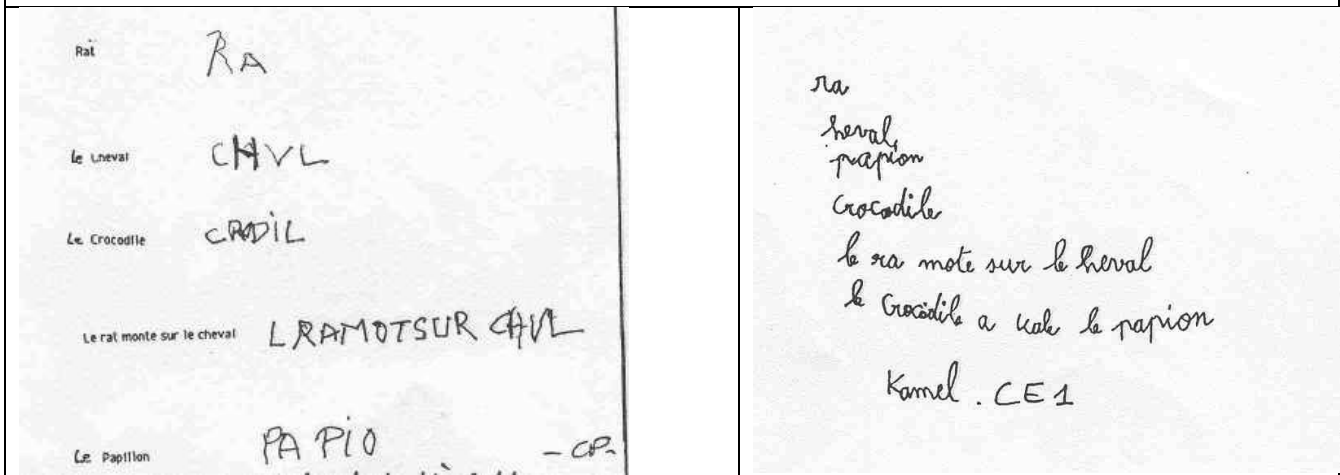 Rat RA
Le Cheval CHVL
Le Crocodile CRODIL
Le rat monte sur le cheval L RAMOTSUR CHVL
Le Papillon PAPIO - CP-
ra
heval
papion
crocodile
le ra mote sur le heval
le Crocodile a kale le papion
Kamel . CE1